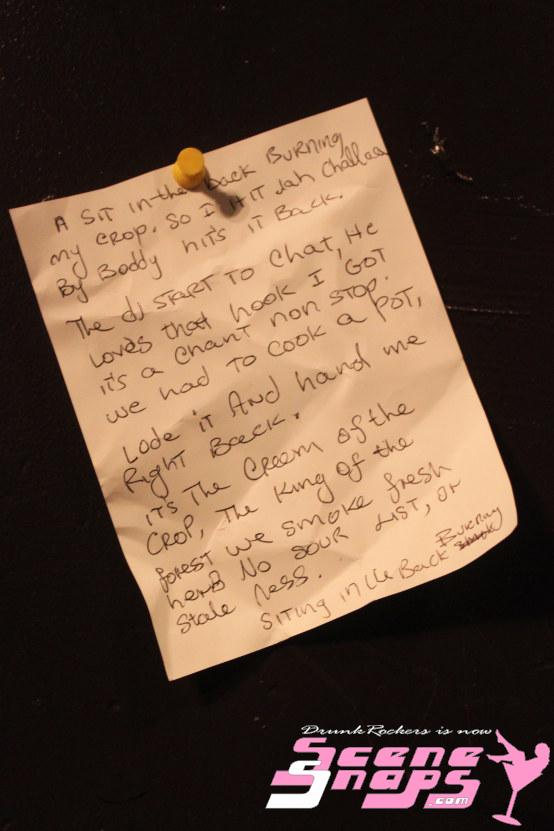 A SIT in the back BURNING
my CROP. SO I HIT Jah Challaa
By Boddy hits it Back.
The dj START TO Chat, He
Loves that hook I GOT
it's a Chant non STOP.
we had TO COOK a POT,
Lode it And hand me
Right Back.
it's The Creem of the
CROP, The King of the
forest we smoke fresh
herb NO SOUR LIST, or
Stale ness.
SITING in Back Burning
DrunkRockers is now
Scene
Snaps
.com